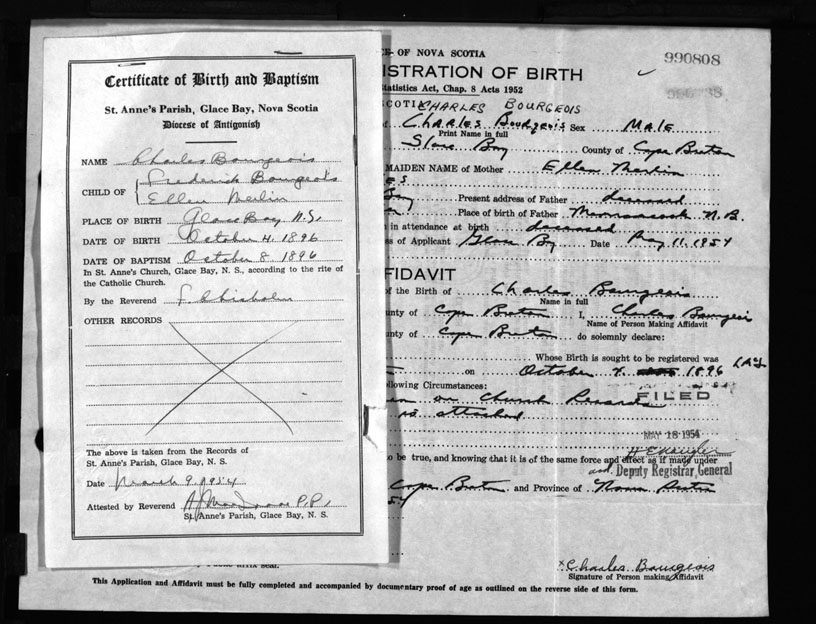 Certificate of Birth and Baptism
St. Anne's Parish, Glace Bay, Nova Scotia
Diocese of Antigonish
NAME Charles Bourgeois
CHILD OF Frederick Bourgeois
Ellen Merlin
PLACE OF BIRTH Glace Bay N.S.
DATE OF BIRTH October 4, 1896
DATE OF BAPTISM October 8 1896
In St. Anne's Church, Glace Bay, N. S., according to the rite of
the Catholic Church.
By the Reverend F. Chisholm
OTHER RECORDS
The above is taken from the Records of
St. Anne's Parish, Glace Bay, N. S.
Date March 9, 1954
Attested by Reverend P.P.
St. Anne's Parish, Glace Bay, N. S.
CE OF NOVA SCOTIA
990808
ISTRATION OF BIRTH
tatistics Act, Chap. 8 Acts 1952
SCOTIA CHARLES BOURGEOIS
Charles Bourgeois Sex MALE
Print Name in full
Glace Bay County of Cape Breton
MAIDEN NAME of Mother Ellen Merlin
ES
Bay Present address of Father deceased
Place of birth of Father N.B.
n in attendance at birth deceased
ss of Applicant Glace Bay Date May 11, 1954
FIDAVIT
of the Birth of Charles Bourgeois
Name in full
unty of Cape Breton I, Charles Bourgeois
Name of Person Making Affidavit
unty of Cape Breton do solemnly declare:
Whose Birth is sought to be registered was
on October 4 1896
llowing Circumstances:
on Church Records
FILED
as attached
MAY 18 1954
to be true, and knowing that it is of the same force and effect as if made under
Deputy Registrar General
Cape Breton and Province of Nova Scotia
54
affix seal.
x Charles Bourgeois
Signature of Person making Affidavit
This Application and Affidavit must be fully completed and accompanied by documentary proof of age as outlined on the reverse side of this form.